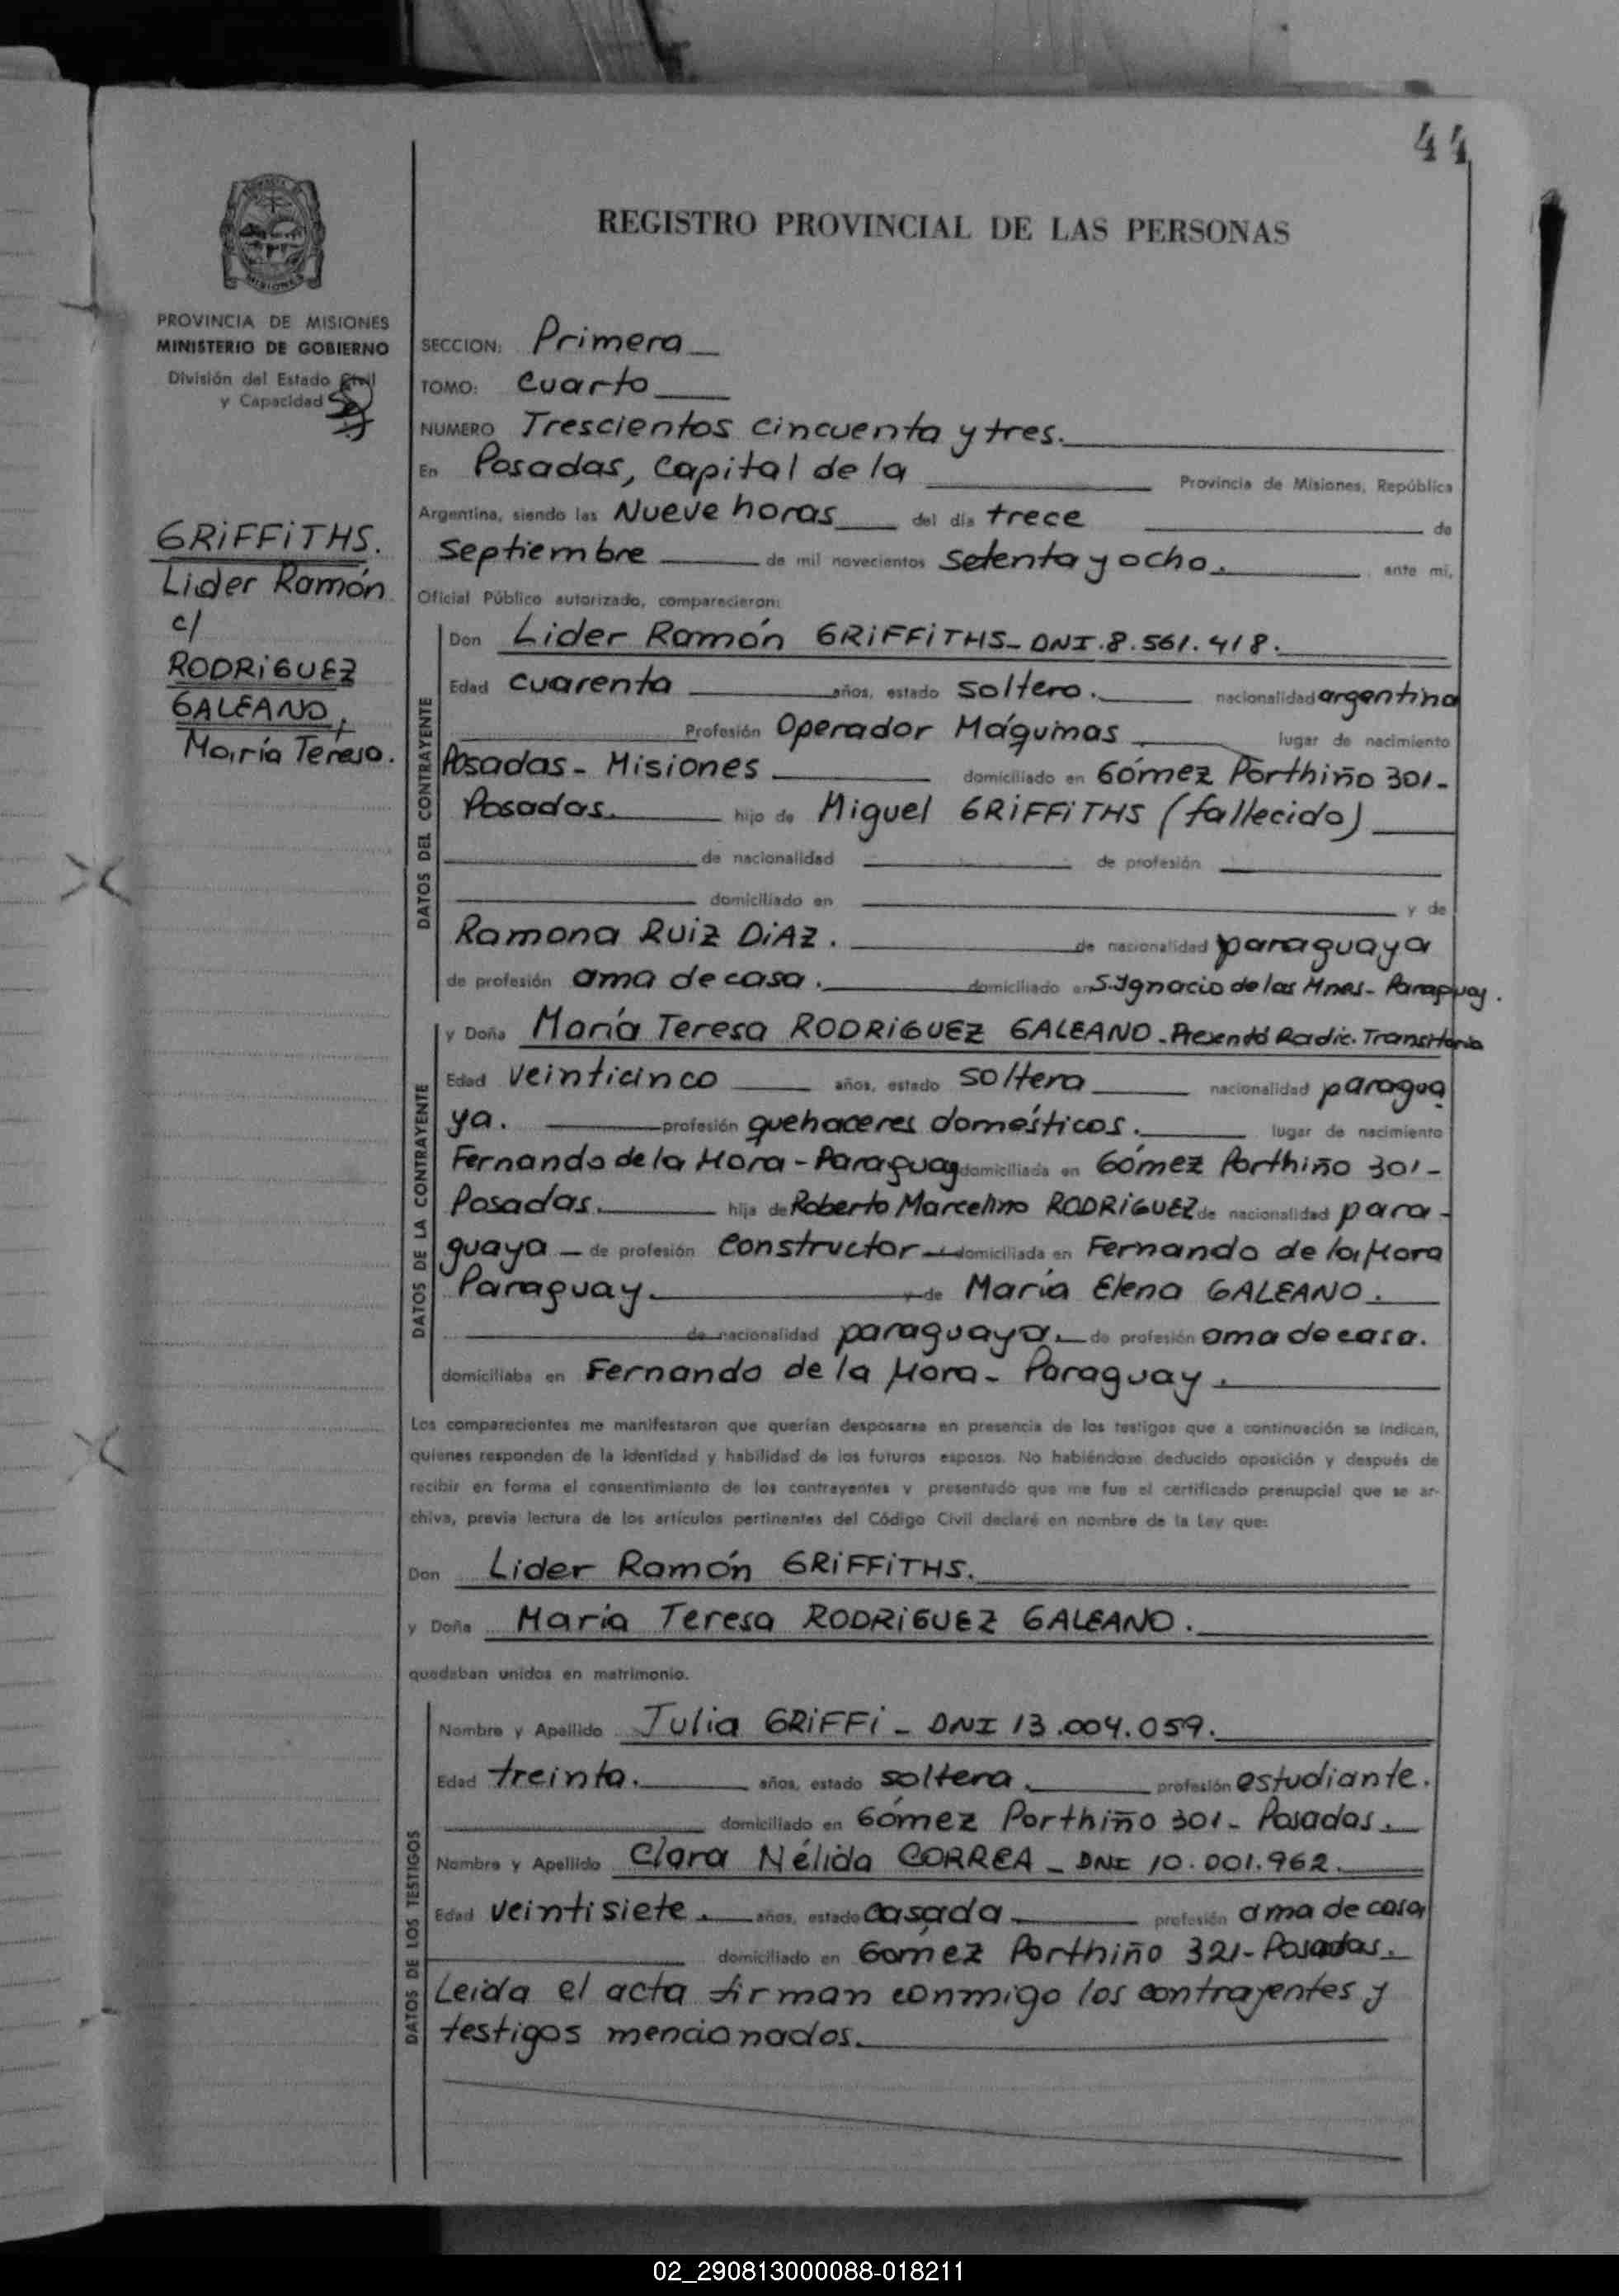 44
REGISTRO PROVINCIAL DE LAS PERSONAS
MISIONES
PROVINCIA DE MISIONES
MINISTERIO DE GOBIERNO
División del Estado Civil
y Capacidad
GRiFFiTHS.
Lider Ramón
c/
RODRiGUEZ
GALEANO,
María Teresa.
SECCION: Primera
TOMO: Cuarto
NUMERO Trescientos cincuenta y tres.
En Posadas, Capital de la Provincia de Misiones, República
Argentina, siendo las Nueve horas del día trece de
septiembre de mil novecientos setenta y ocho. ante mí,
Oficial Público autorizado, comparecieron:
DATOS DEL CONTRAYENTE
Don Lider Ramón GRiFFiTHS- DNI.8.561.418.
Edad cuarenta años, estado soltero. nacionalidad argentina
Profesión Operador Máquinas lugar de nacimiento
Posadas- Misiones domiciliado en Gómez Porthiño 301-
Posadas. hijo de Miguel GRiFFiTHS (fallecido)
de nacionalidad de profesión
domiciliado en y de
Ramona RUiZ DiAZ. de nacionalidad paraguaya
de profesión ama de casa. domiciliado en S.Ygnacio de las Mnes- Paraguay.
DATOS DE LA CONTRAYENTE
y Doña María Teresa RODRiGUEZ GALEANO-Presentó Radic. Transitoria
Edad veinticinco años, estado soltera nacionalidad paragua
ya. profesión quehaceres domésticos. lugar de nacimiento
Fernando de la Mora-Paraguay domiciliada en Gómez Porthiño 301-
Posadas. hija de Roberto Marcelino RODRiGUEZ de nacionalidad para-
guaya - de profesión constructor domiciliada en Fernando de la Mora
Paraguay. y de María Elena GALEANO.
de nacionalidad paraguaya. de profesión ama de casa.
domiciliaba en Fernando de la Mora- Paraguay.
Los comparecientes me manifestaron que querían desposarse en presencia de los testigos que a continuación se indican,
quienes responden de la identidad y habilidad de los futuros esposos. No habiéndose deducido oposición y después de
recibir en forma el consentimiento de los contrayentes y presentado que me fue el certificado prenupcial que se ar-
chiva, previa lectura de los artículos pertinentes del Código Civil declaré en nombre de la Ley que:
Don Lider Ramón GRiFFiTHS.
y Doña María Teresa RODRiGUEZ GALEANO.
quedaban unidos en matrimonio.
DATOS DE LOS TESTIGOS
Nombre y Apellido Julia GRiFFi- DNI 13.004.059.
Edad treinta. años, estado soltera. profesión estudiante.
domiciliado en Gómez Porthiño 301- Posadas.
Nombre y Apellido Clara Nélida CORREA- DNI 10.001.962.
Edad veintisiete. años, estado casada profesión ama de casa
domiciliado en Gomez Porthiño 321-Posadas.
Leida el acta firman conmigo los contrayentes y
testigos mencionados.
02_290813000088-018211